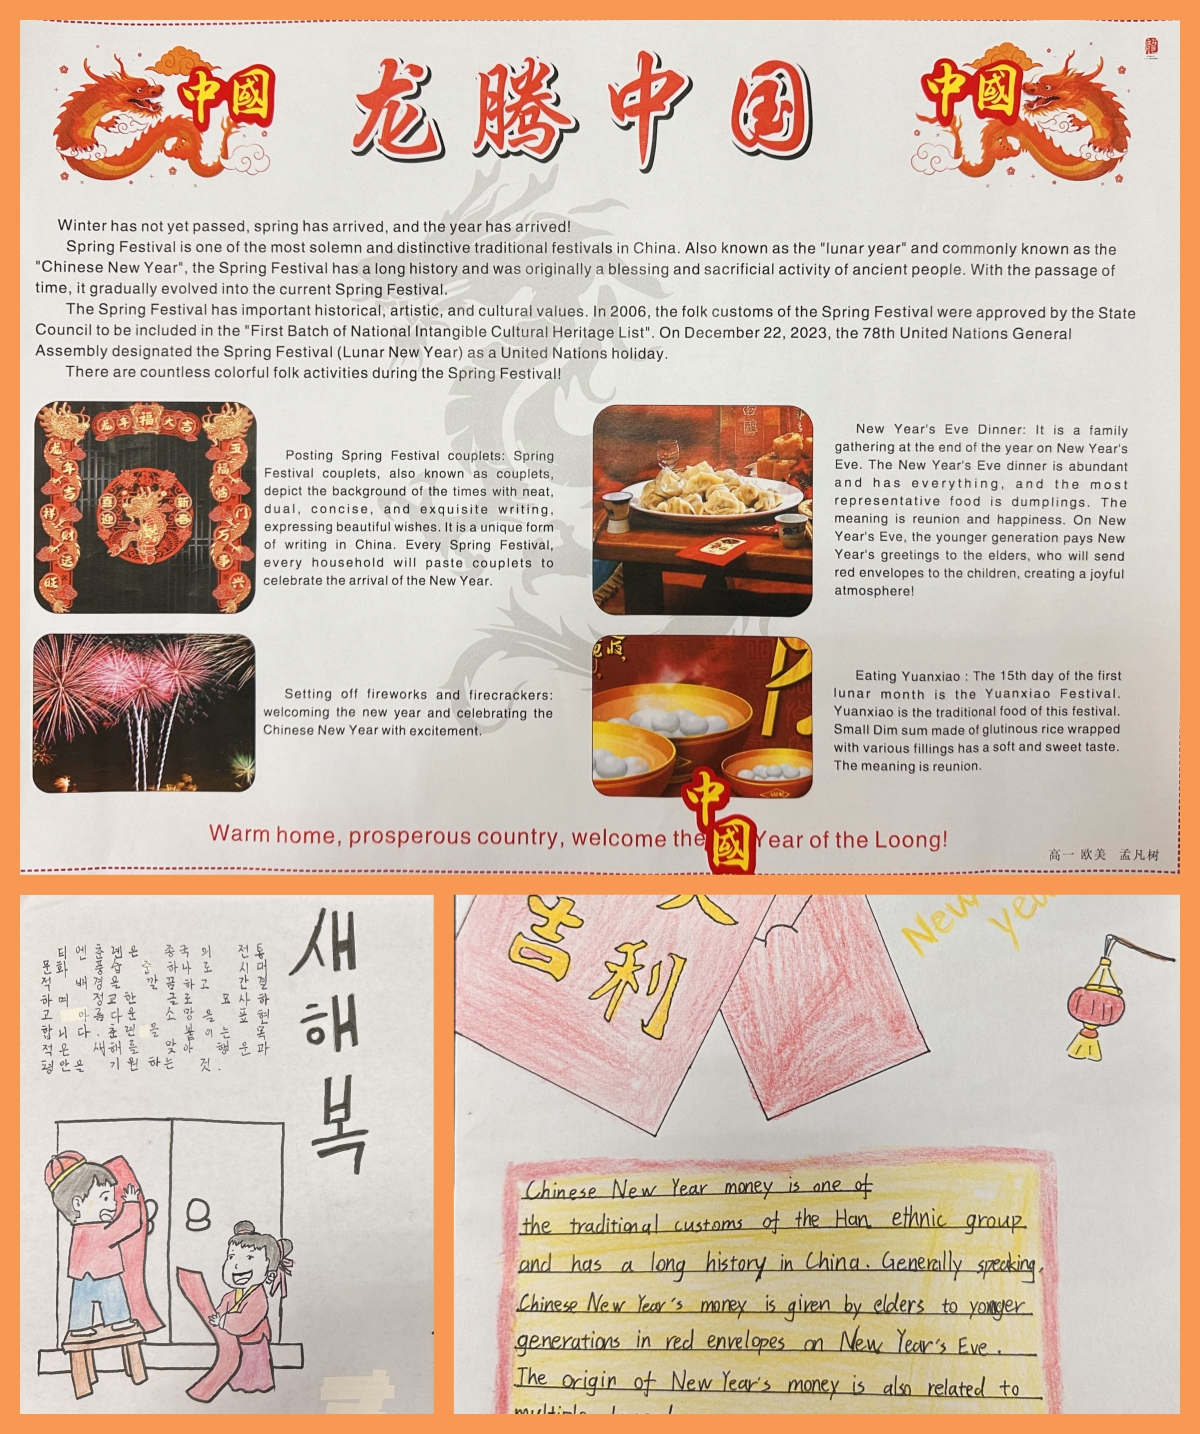 中國
龙腾中国
中國
Winter has not yet passed, spring has arrived, and the year has arrived!
Spring Festival is one of the most solemn and distinctive traditional festivals in China. Also known as the "lunar year" and commonly known as the
"Chinese New Year", the Spring Festival has a long history and was originally a blessing and sacrificial activity of ancient people. With the passage of
time, it gradually evolved into the current Spring Festival.
The Spring Festival has important historical, artistic, and cultural values. In 2006, the folk customs of the Spring Festival were approved by the State
Council to be included in the "First Batch of National Intangible Cultural Heritage List". On December 22, 2023, the 78th United Nations General
Assembly designated the Spring Festival (Lunar New Year) as a United Nations holiday.
There are countless colorful folk activities during the Spring Festival!
龙年福大吉
龙年吉祥财运旺
五福临门万事兴
喜迎新春
Posting Spring Festival couplets: Spring
Festival couplets, also known as couplets,
depict the background of the times with neat,
dual, concise, and exquisite writing,
expressing beautiful wishes. It is a unique form
of writing in China. Every Spring Festival,
every household will paste couplets to
celebrate the arrival of the New Year.
New Year's Eve Dinner: It is a family
gathering at the end of the year on New Year's
Eve. The New Year's Eve dinner is abundant
and has everything, and the most
representative food is dumplings. The
meaning is reunion and happiness. On New
Year's Eve, the younger generation pays New
Year's greetings to the elders, who will send
red envelopes to the children, creating a joyful
atmosphere!
Setting off fireworks and firecrackers:
welcoming the new year and celebrating the
Chinese New Year with excitement.
Eating Yuanxiao : The 15th day of the first
lunar month is the Yuanxiao Festival.
Yuanxiao is the traditional food of this festival.
Small Dim sum made of glutinous rice wrapped
with various fillings has a soft and sweet taste.
The meaning is reunion.
中國
Warm home, prosperous country, welcome the Year of the Loong!
高一 欧美 孟凡树
새해복
티엔춘롄은 중국의 전통
문화 풍습 중 하나로 시대
적 배경을 깔끔하고 간결
하며 정교한 글로 묘사하
고 아름다운 소망을 표현
합니다. 춘롄을 붙이는 목
적은 새해를 맞아 행운과
평안을 기원하는 것.
吉
利
New
year
Chinese New Year money is one of
the traditional customs of the Han ethnic group
and has a long history in China. Generally speaking,
Chinese New Year's money is given by elders to younger
generations in red envelopes on New Year's Eve.
The origin of New Year's money is also related to